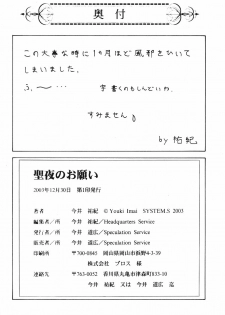 奥付
この大事な時に1ヶ月ほど風邪をひいて
しまいました。
ふ、〜…　字書くのもしんどいわ。
すみません
by 祐紀
聖夜のお願い
2003年12月30日　第1印発行
著者　今井　祐紀　© Youki Imai　SYSTEM.S 2003
編集者／所　今井　祐紀／Headquarters Service
発行者／所　今井　道広／Speculation Service
販売者／所　今井　道広／Speculation Service
印刷所　〒700-0845　岡山県岡山市浜野4-3-39
株式会社　プロス　様
連絡先　〒763-0052　香川県丸亀市津森町103-10
今井　祐紀　又は　今井　道広　迄